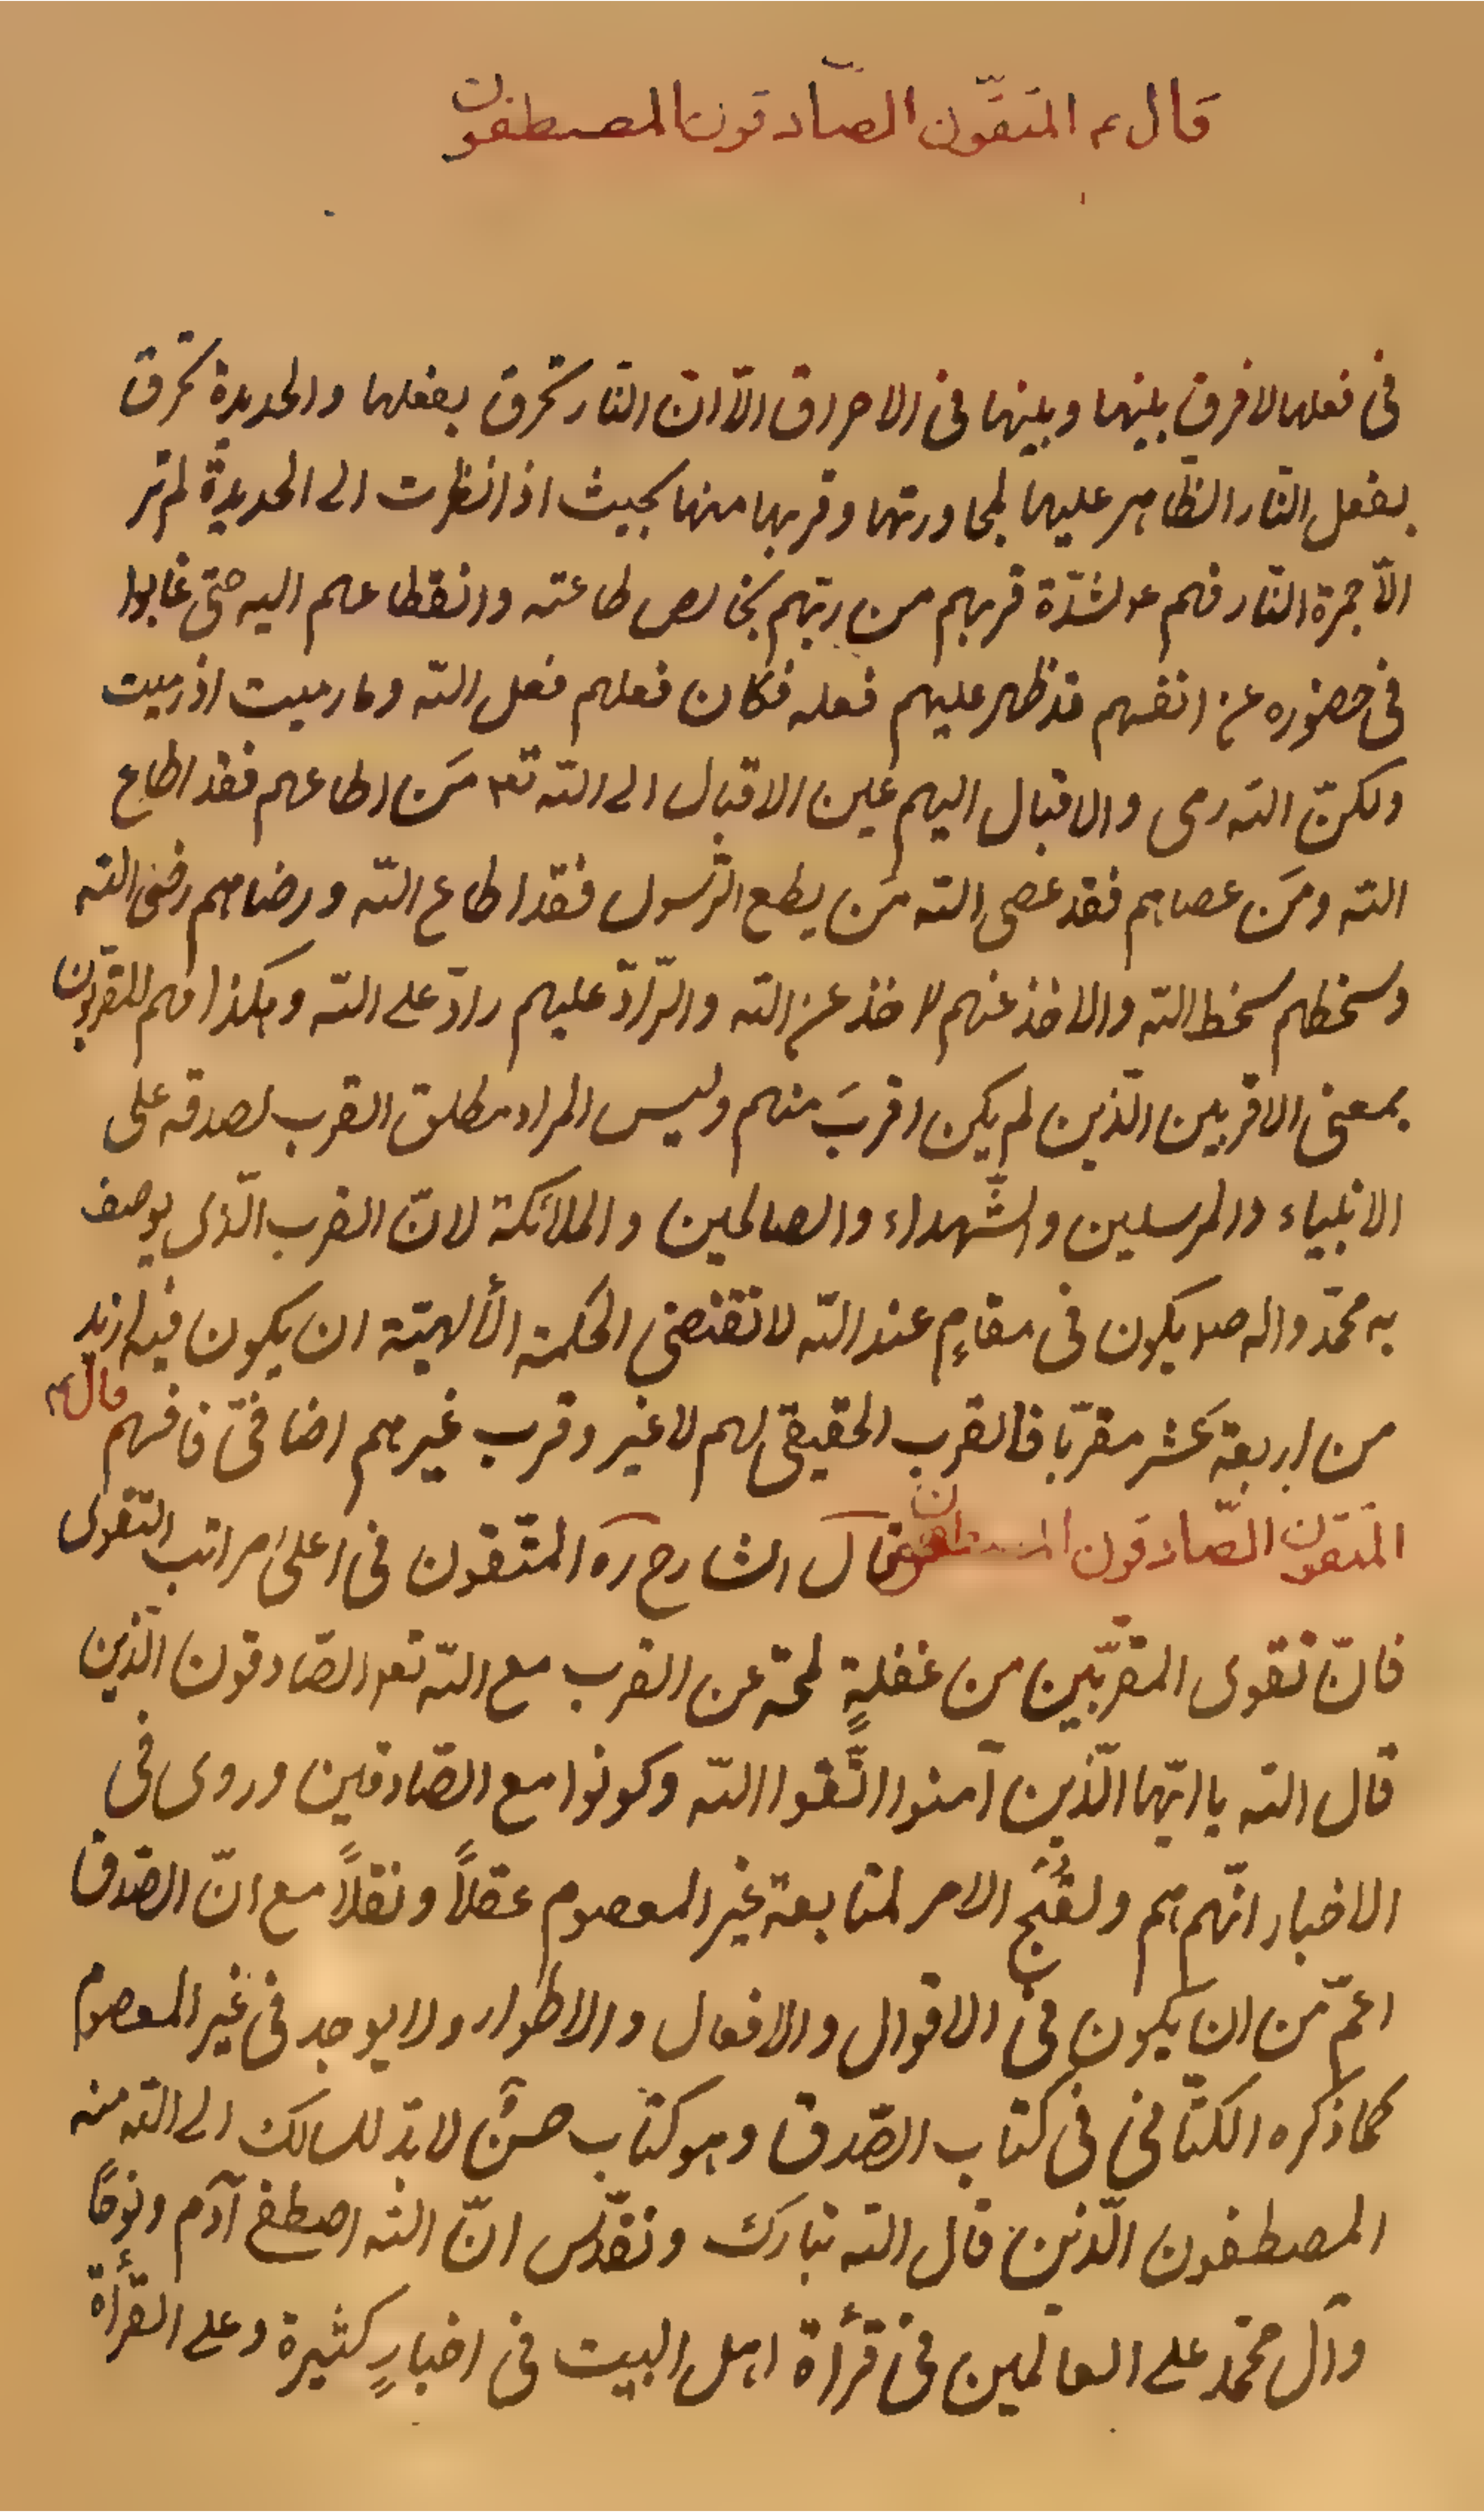 قال ع المتقون الصّادقون المصطفون
فى فعلها لا فرق بينها وبينها فى الاحراق الّا انّ النّار تحرق بفعلها والحديدة تحرق
بفعل النّار الظّاهر عليها لمجاورتها وقربها منها بحيث اذا نظرت الى الحديدة لم تر
الّا حمرة النّار فهم ع لشدّة قربهم من ربّهم بخالص طاعته وانقطاعهم اليه حتّى غابوا
فى حضوره عن انفسهم قد ظهر عليهم فعله فكان فعلهم فعل اللّه وما رميت اذ رميت
ولكنّ اللّه رمى والاقبال اليهم عين الاقبال الى اللّه تع مَن اطاعهم فقد اطاع
اللّه ومَن عصاهم فقد عصى اللّه مَن يطع الرّسول فقد اطاع اللّه ورضاهم رضى اللّه
وسخطهم سخط اللّه والاخذ عنهم الاخذ عن اللّه والرّادّ عليهم رادّ على اللّه وهكذا فهم المقرّبون
بمعنى الاقربين الّذين لم يكن اقربَ منهم وليس المراد مطلق القرب لصدقه على
الانبياء والمرسلين والشّهداء والصالحين والملائكة لانّ القرب الّذى يوصف
به محمّد واله ص يكون فى مقامٍ عند اللّه لا تقتضى الحكمة الألهيّة ان يكون فيه ازيد
من اربعة عَشر مقرّبا فالقرب الحقيقى لهم لا غير وقرب غيرهم اضافىّ فافهم قال ع
المتقون الصّادقون المصطفون قال الشارح ره المتّقون فى اعلى مراتب التّقوى
فانّ تقوى المقرّبين من غفلةٍ لمحة عن القرب مع اللّه تع الصّادقون الّذين
قال اللّه يا ايّها الّذين آمنوا اتّقوا اللّه وكونوا مع الصّادقين وروى فى
الاخبار انّهم هم ولقُبْحِ الامر لمتابعة غير المعصوم عقلاً ونقلاً مع انّ الصّدق
اعمّ من ان يكون فى الاقوال والافعال والاطوار ولا يوجد فى غير المعصوم
كما ذكره الكتافى فى كتاب الصّدق وهو كتاب حسن لا بدّ للسالك الى اللّه منه
المصطفون الّذين قال اللّه تبارك وتقدّس انّ اللّه اصطفى آدم ونوحًا
وآل محمّد على العالمين فى قرأة اهل البيت فى اخبارٍ كثيرة وعلى القرأة